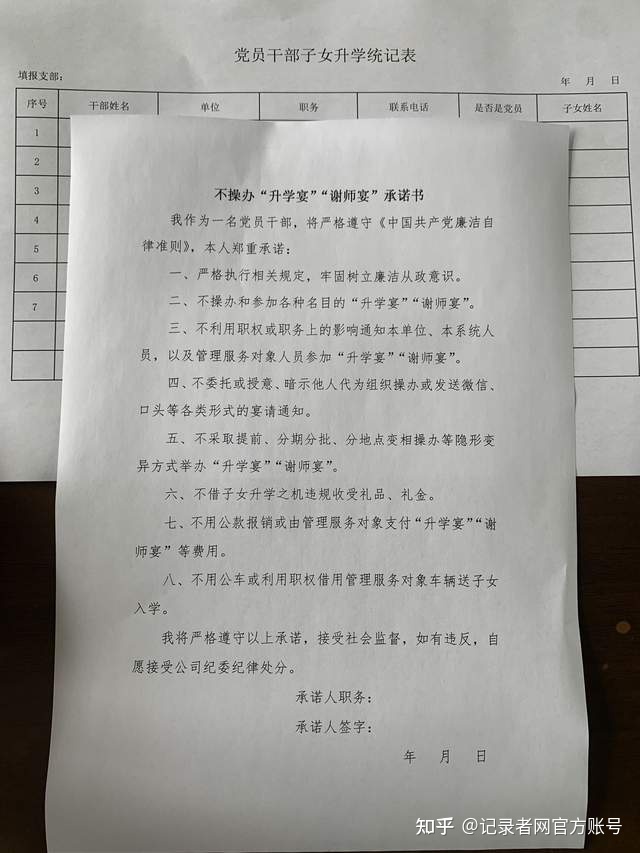 党员干部子女升学统记表
填报支部：
年 月 日
序号 干部姓名 单位 职务 联系电话 是否是党员 子女姓名
1
2
3
4
5
6
7
不操办“升学宴”“谢师宴”承诺书
我作为一名党员干部，将严格遵守《中国共产党廉洁自
律准则》，本人郑重承诺：
一、严格执行相关规定，牢固树立廉洁从政意识。
二、不操办和参加各种名目的“升学宴”“谢师宴”。
三、不利用职权或职务上的影响通知本单位、本系统人
员，以及管理服务对象人员参加“升学宴”“谢师宴”。
四、不委托或授意、暗示他人代为组织操办或发送微信、
口头等各类形式的宴请通知。
五、不采取提前、分期分批、分地点变相操办等隐形变
异方式举办“升学宴”“谢师宴”。
六、不借子女升学之机违规收受礼品、礼金。
七、不用公款报销或由管理服务对象支付“升学宴”“谢
师宴”等费用。
八、不用公车或利用职权借用管理服务对象车辆送子女
入学。
我将严格遵守以上承诺，接受社会监督，如有违反，自
愿接受公司纪委纪律处分。
承诺人职务：
承诺人签字：
年 月 日
知乎 @记录者网官方账号